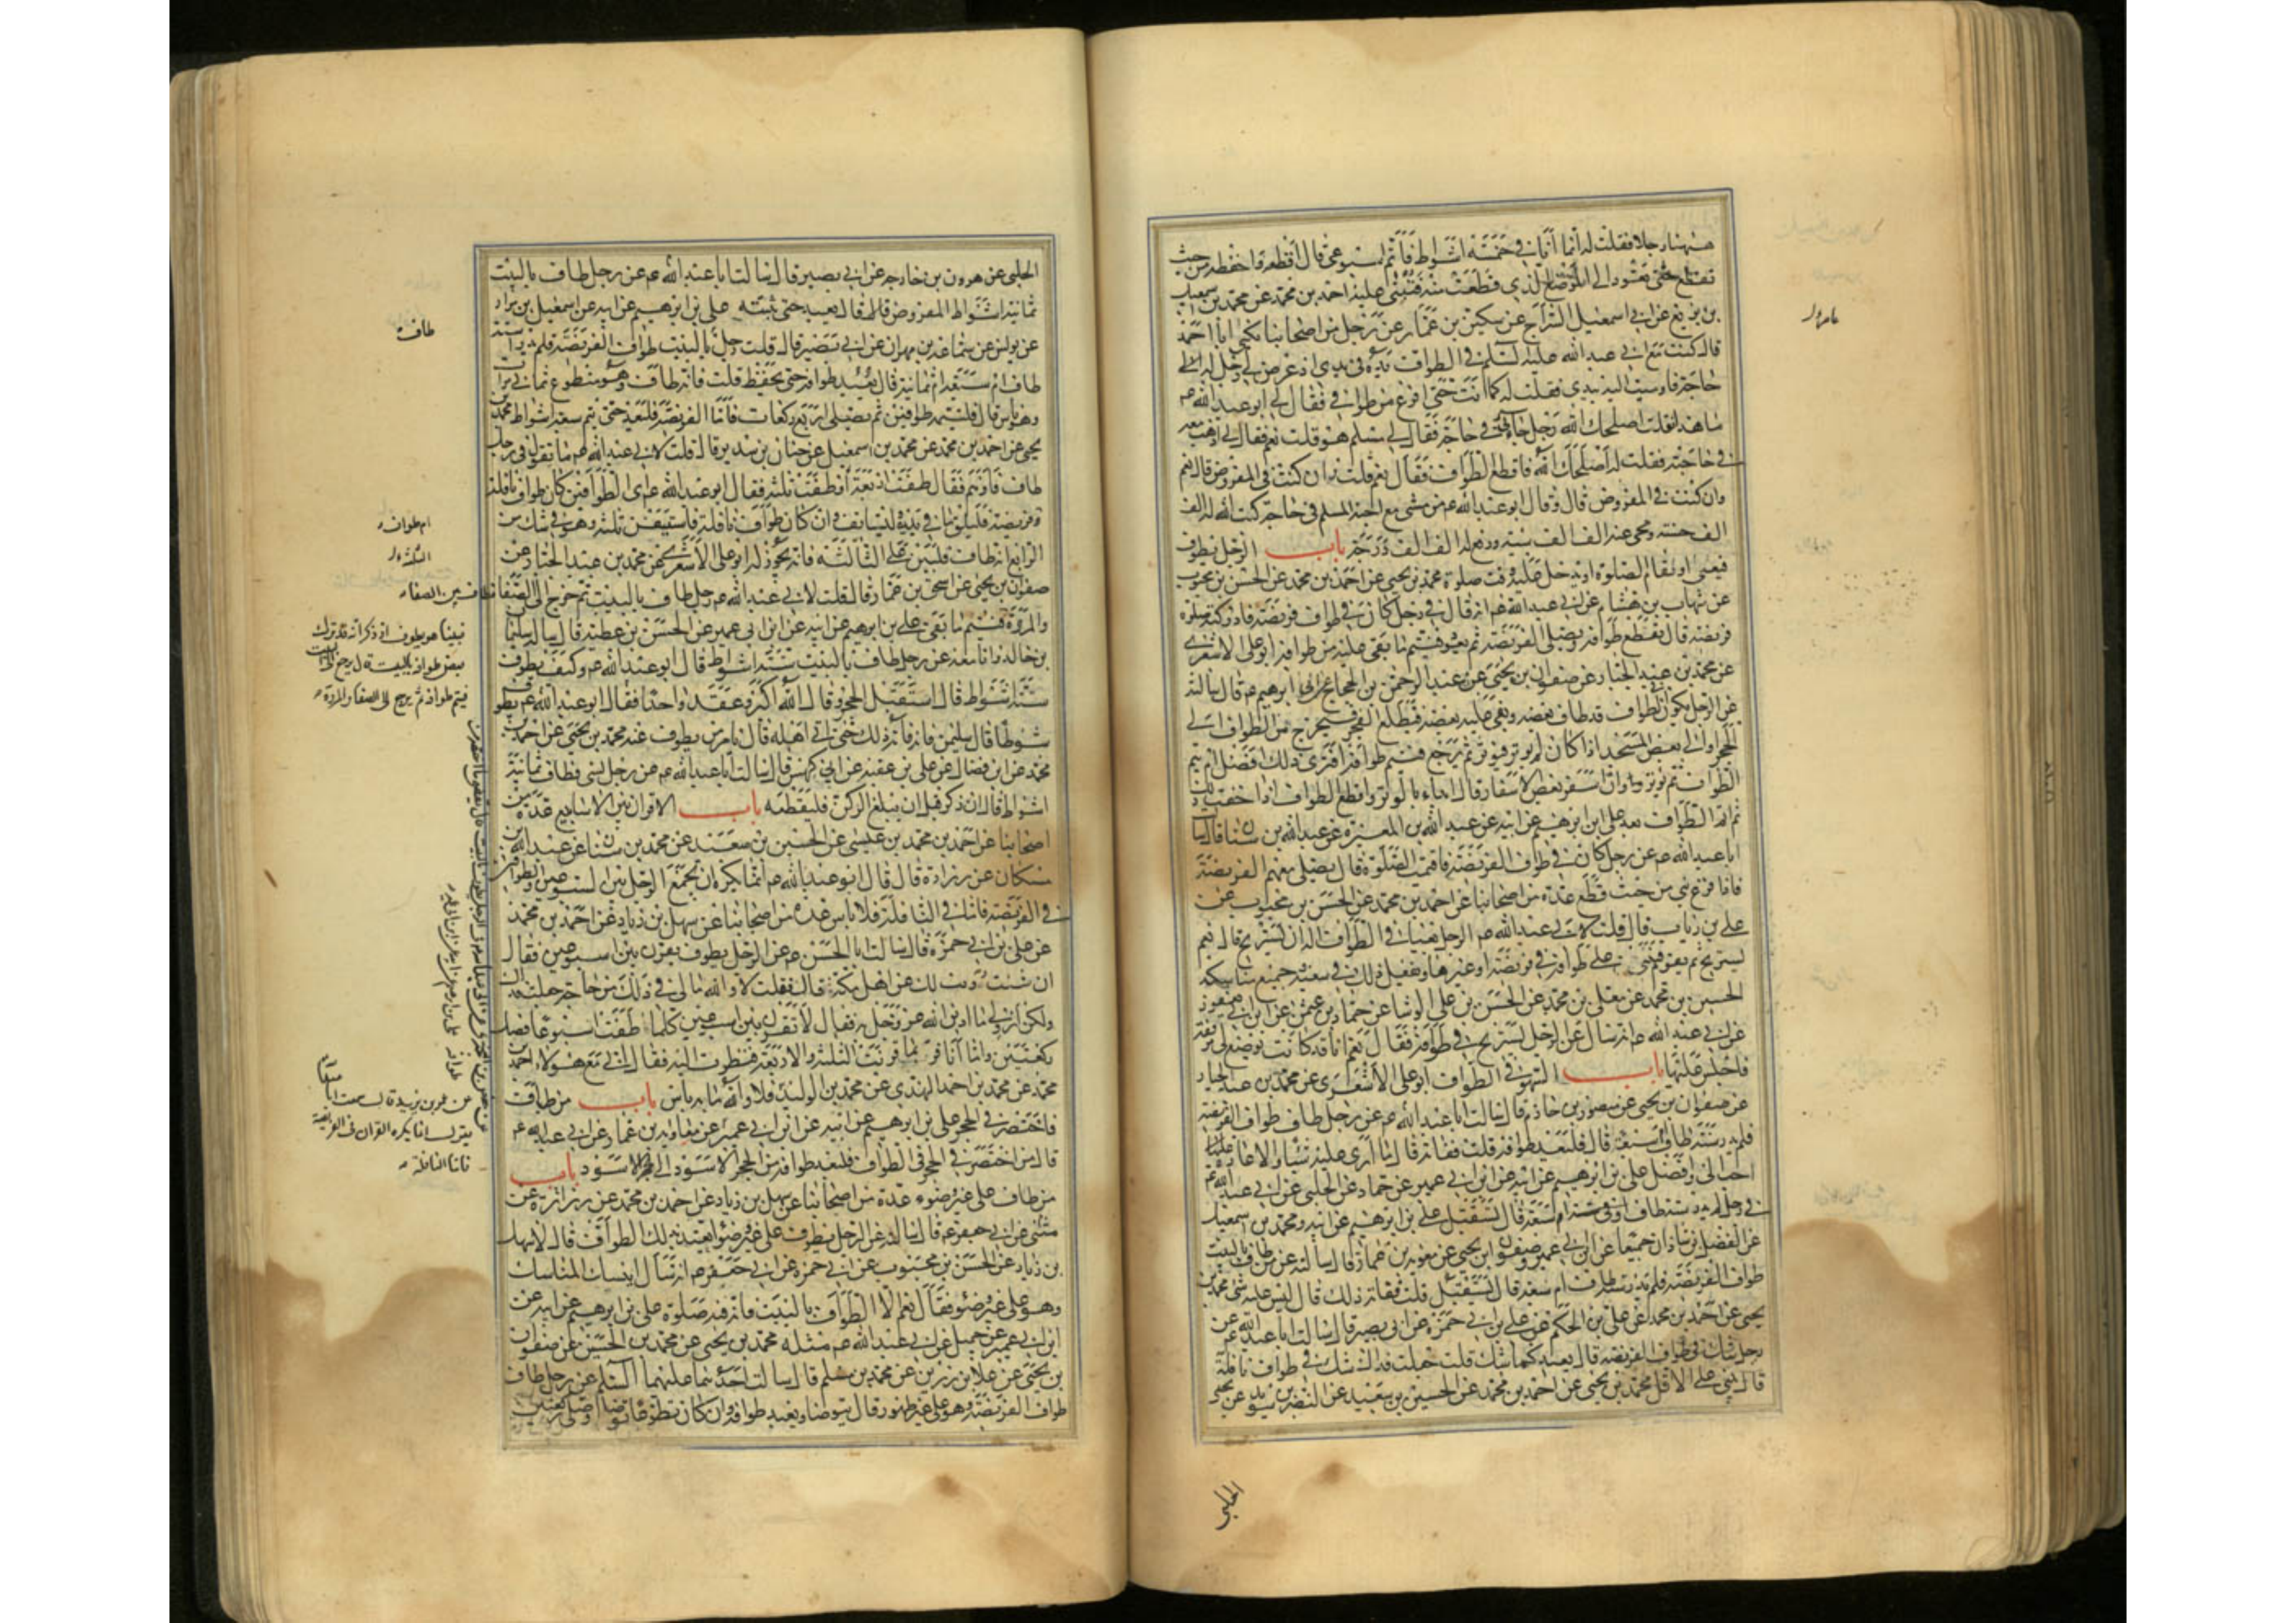 ههنا رجلا فقلت له انما انا في خمسة اشواط فاتم اسبوعي قال اقطعه واحفظه من حيث
تقطع حتى تعود الى الموضع الذي قطعت منه فتبني عليه احمد بن محمد عن محمد بن اسمعيل
بن بزيع عن ابي اسمعيل السراج عن سكين بن عمار عن رجل من اصحابنا يكنى ابا احمد
قال كنت مع ابي عبد الله عليه السلم في الطواف يده في يدي اذ عرض لي رجل له الي
حاجة فاوميت اليه بيدي فقلت له كما انت حتى افرغ من طوافي فقال لي ابو عبد الله عم
ما هذا فقلت اصلحك الله رجل جاءني في حاجة فقال لي مسلم هو قلت نعم فقال لي اذهب معه
في حاجته فقلت له اصلحك الله فاقطع الطواف فقال نعم قلت وان كنت في المفروض قال نعم
وان كنت في المفروض قال وقال ابو عبد الله عم من مشى مع اخيه المسلم في حاجة كتب الله له الف
الف حسنة ومحى عنه الف الف سيئة ورفع له الف الف درجة باب الرجل يطوف
فيعيى او تقام الصلوة او يدخل عليه وقت صلوة محمد بن يحيى عن احمد بن محمد عن الحسن بن محبوب
عن شهاب بن هشام عن ابي عبد الله عم انه قال في رجل كان في طواف فريضة فادركته صلوة
فريضة قال يقطع طوافه ويصلي الفريضة ثم يعود فيتم ما بقي عليه من طوافه ابو علي الاشعري
عن محمد بن عبد الجبار عن صفوان بن يحيى عن عبد الرحمن بن الحجاج عن ابي ابرهيم عم قال سالته
عن الرجل يكون في الطواف قد طاف بعضه وبقي عليه بعضه فيطلع الفجر فيخرج من الطواف الى
الحجر او الى بعض المسجد اذا كان لم يوتر فيوتر ثم يرجع فيتم طوافه افترى ذلك افضل ام يتم
الطواف ثم يوتر وان اسفر بعض الاسفار قال ابداء بالوتر واقطع الطواف اذا خفت ذلك
ثم اتم الطواف بعد علي ابن ابرهيم عن ابيه عن عبد الله بن المغيرة عن عبد الله بن سنان قال سالت
ابا عبد الله عم عن رجل كان في طواف الفريضة فاقيمت الصلوة قال يصلي معهم الفريضة
فاذا فرغ بنى من حيث قطع عدة من اصحابنا عن احمد بن محمد عن الحسن بن محبوب عن
علي بن رياب قال قلت لابي عبد الله عم الرجل يعيى في الطواف اله ان يستريح قال نعم
يستريح ثم يقوم فيبني على طوافه في فريضة او غيرها ويفعل ذلك في سعيه وجميع مناسكه
الحسين بن محمد عن معلى بن محمد عن الحسن بن علي الوشا عن حماد بن عثمن عن ابن ابي يعفور
عن ابي عبد الله عم انه سال عن الرجل يستريح في طوافه فقال نعم انا قد كانت توضع لي مرفقة
فاجلس عليها باب السهو في الطواف ابو علي الاشعري عن محمد بن عبد الجبار
عن صفوان بن يحيى عن منصور بن حازم قال سالت ابا عبد الله عم عن رجل طاف طواف الفريضة
فلم يدر ستة طاف ام سبعة قال فليعد طوافه قلت ففاته قال ما ارى عليه شيئا والاعادة
احب الي وافضل علي بن ابرهيم عن ابيه عن ابن ابي عمير عن حماد عن الحلبي عن ابي عبد الله عم
في رجل لم يدر ستة طاف او سبعة قال يستقبل علي بن ابرهيم عن ابيه ومحمد بن اسمعيل
عن الفضل بن شاذان جميعا عن ابن ابي عمير وصفوان ابن يحيى عن معوية بن عمار قال سالته عن من طاف بالبيت
طواف الفريضة فلم يدر ستة طاف ام سبعة قال يستقبل قلت ففاته ذلك قال ليس عليه شي محمد بن
يحيى عن احمد بن محمد عن علي بن الحكم عن علي بن ابي حمزة عن ابي بصير قال سالت ابا عبد الله عم عن
رجل شك في طواف الفريضة قال يعيد كلما شك قلت جعلت فداك شك في طواف نافلة
قال يبني على الاقل محمد بن يحيى عن احمد بن محمد عن الحسين بن سعيد عن النضر بن سويد عن يحيى
الحلبي
الحلبي عن هرون بن خارجه عن ابي بصير قال سالت ابا عبد الله عم عن رجل طاف بالبيت
ثمانية اشواط المفروض قال يعيد حتى يثبته علي بن ابرهيم عن ابيه عن اسمعيل بن مرار
عن يونس عن سماعة بن مهران عن ابي بصير قال قلت رجل بالبيت طواف الفريضة فلم يدر استة
طاف ام سبعة ام ثمانية قال يعيد طوافه حتى يحفظ قلت فانه طاف وهو متطوع ثماني مرات
وهو ناس قال فليتمه طوافين ثم يصلي اربع ركعات فاما الفريضة فليعد حتى يتم سبعة اشواط محمد بن
يحيى عن احمد بن محمد عن محمد بن اسمعيل عن حنان بن سدير قال قلت لابي عبد الله عم ما تقول في رجل
طاف فاوهم فقال طفت اربعة او طفت ثلثة فقال ابو عبد الله عم اي الطوافين كان طواف نافلة
او فريضة فليلق ما في يديه وليستانف وان كان طواف نافلة فاستيقن ثلثة وهو في شك من
الرابع انه طاف فليبن على الثالثة فانه يجوز له ابو علي الاشعري عن محمد بن عبد الجبار عن
صفوان بن يحيى عن اسحق بن عمار قال قلت لابي عبد الله عم رجل طاف بالبيت ثم خرج الى الصفا
والمروة فيتم ما بقي علي بن ابرهيم عن ابيه عن ابن ابي عمير عن الحسن بن عطية قال ساله سليمان
بن خالد وانا معه عن رجل طاف بالبيت ستة اشواط قال ابو عبد الله عم وكيف يطوف
ستة اشواط قال استقبل الحجر وقال الله اكبر وعقد واحدا فقال ابو عبد الله عم يطوف
شوطا قال سليمن فانه فاته ذلك حتى اتى اهله قال يامر من يطوف عنه محمد بن يحيى عن احمد بن
محمد عن ابن فضال عن علي بن عقبة عن ابي كهمس قال سالت ابا عبد الله عم عن رجل نسي فطاف ثمانية
اشواط قال ان ذكر قبل ان يبلغ الركن فليقطعه باب الاقران بين الاسابيع عدة من
اصحابنا عن احمد بن محمد بن عيسى عن الحسين بن سعيد عن محمد بن سنان عن عبد الله بن
مسكان عن زرارة قال قال ابو عبد الله عم انما يكره ان يجمع الرجل بين اسبوعين والطوافين
في الفريضة فاما في النافلة فلا باس عدة من اصحابنا عن سهل بن زياد عن احمد بن محمد
عن علي بن ابي حمزة قال سالت ابا الحسن عم عن الرجل يطوف يقرن بين اسبوعين فقال
ان شئت رويت لك عن اهل مكة قال فقلت لا والله مالي في ذلك من حاجة جعلت فداك
ولكن ارو لي ما ادين الله عز وجل به فقال لا تقرن بين اسبوعين كلما طفت اسبوعا فصل
ركعتين واما انا فربما قرنت الثلثة والاربعة فنظرت اليه فقال اني مع هولاء احمد بن
محمد عن محمد بن احمد النهدي عن محمد بن الوليد فلا والله ما به باس باب من طاف
فاختصر في الحجر علي بن ابرهيم عن ابيه عن ابن ابي عمير عن معاوية بن عمار عن ابي عبد الله عم
قال من اختصر في الحجر في الطواف فليعد طوافه من الحجر الاسود الى الحجر الاسود باب
من طاف على غير وضوء عدة من اصحابنا عن سهل بن زياد عن احمد بن محمد عن زرارة عن
مثنى عن ابي جعفر عم قال سالته عن الرجل يطوف على غير وضوء ايعتد بذلك الطواف قال لا سهل
بن زياد عن الحسن بن محبوب عن ابي حمزة عن ابي جعفر عم انه سال اينسك المناسك
وهو على غير وضوء فقال نعم الا الطواف بالبيت فان فيه صلوة علي بن ابرهيم عن ابيه عن
ابن ابي عمير عن جميل عن ابي عبد الله عم مثله محمد بن يحيى عن محمد بن الحسين عن صفوان
بن يحيى عن علا بن رزين عن محمد بن مسلم قال سالت احدهما عليهما السلم عن رجل طاف
طواف الفريضة وهو على غير طهور قال يتوضا ويعيد طوافه وان كان تطوعا توضا وصلى ركعتين
طاف
ام طواف
الثلثة
فطاف بين الصفا
فبينا هو يطوف اذ ذكر انه قد ترك
بعض طوافه بالبيت قال يرجع الى البيت
فيتم طوافه ثم يرجع الى الصفا والمروة
عن عمر بن يزيد قال سمعت ابا
يقول انما يكره القران في الفريضة
فاما النافلة